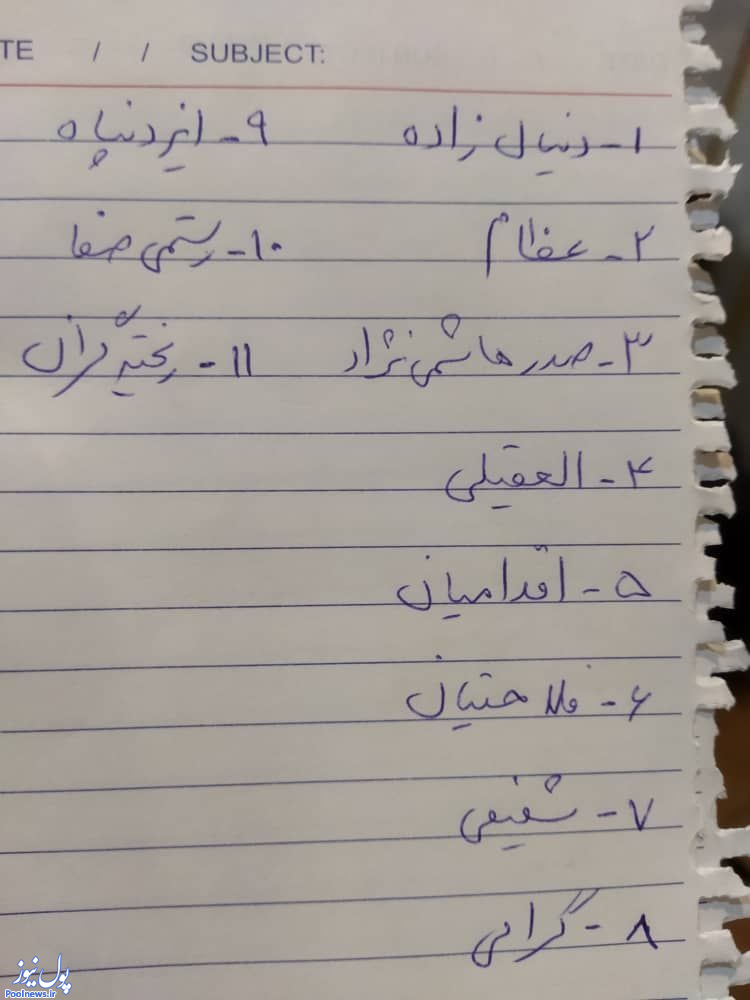 TE / / SUBJECT:
۱- دنیال زاده
۲- عظام
۳- صدر هاشمی نژاد
۴- العقیلی
۵- اقدامیان
۶- فلاحتیان
۷- شفیعی
۸- گرامی
۹- ایزدپناه
۱۰- رستمی صفا
۱۱- ریخته گران
پول نیوز
Poolnews.ir